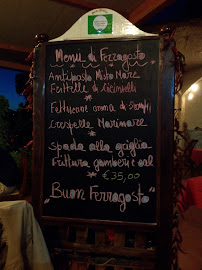 Menù di Ferragosto
Antipasto Misto Mare
Frittelle di Cicinielli
Fettuccine aroma di
Crespelle Marinare
Spada alla griglia
Frittura gamberi e cal
€35,00
"Buon Ferragosto"